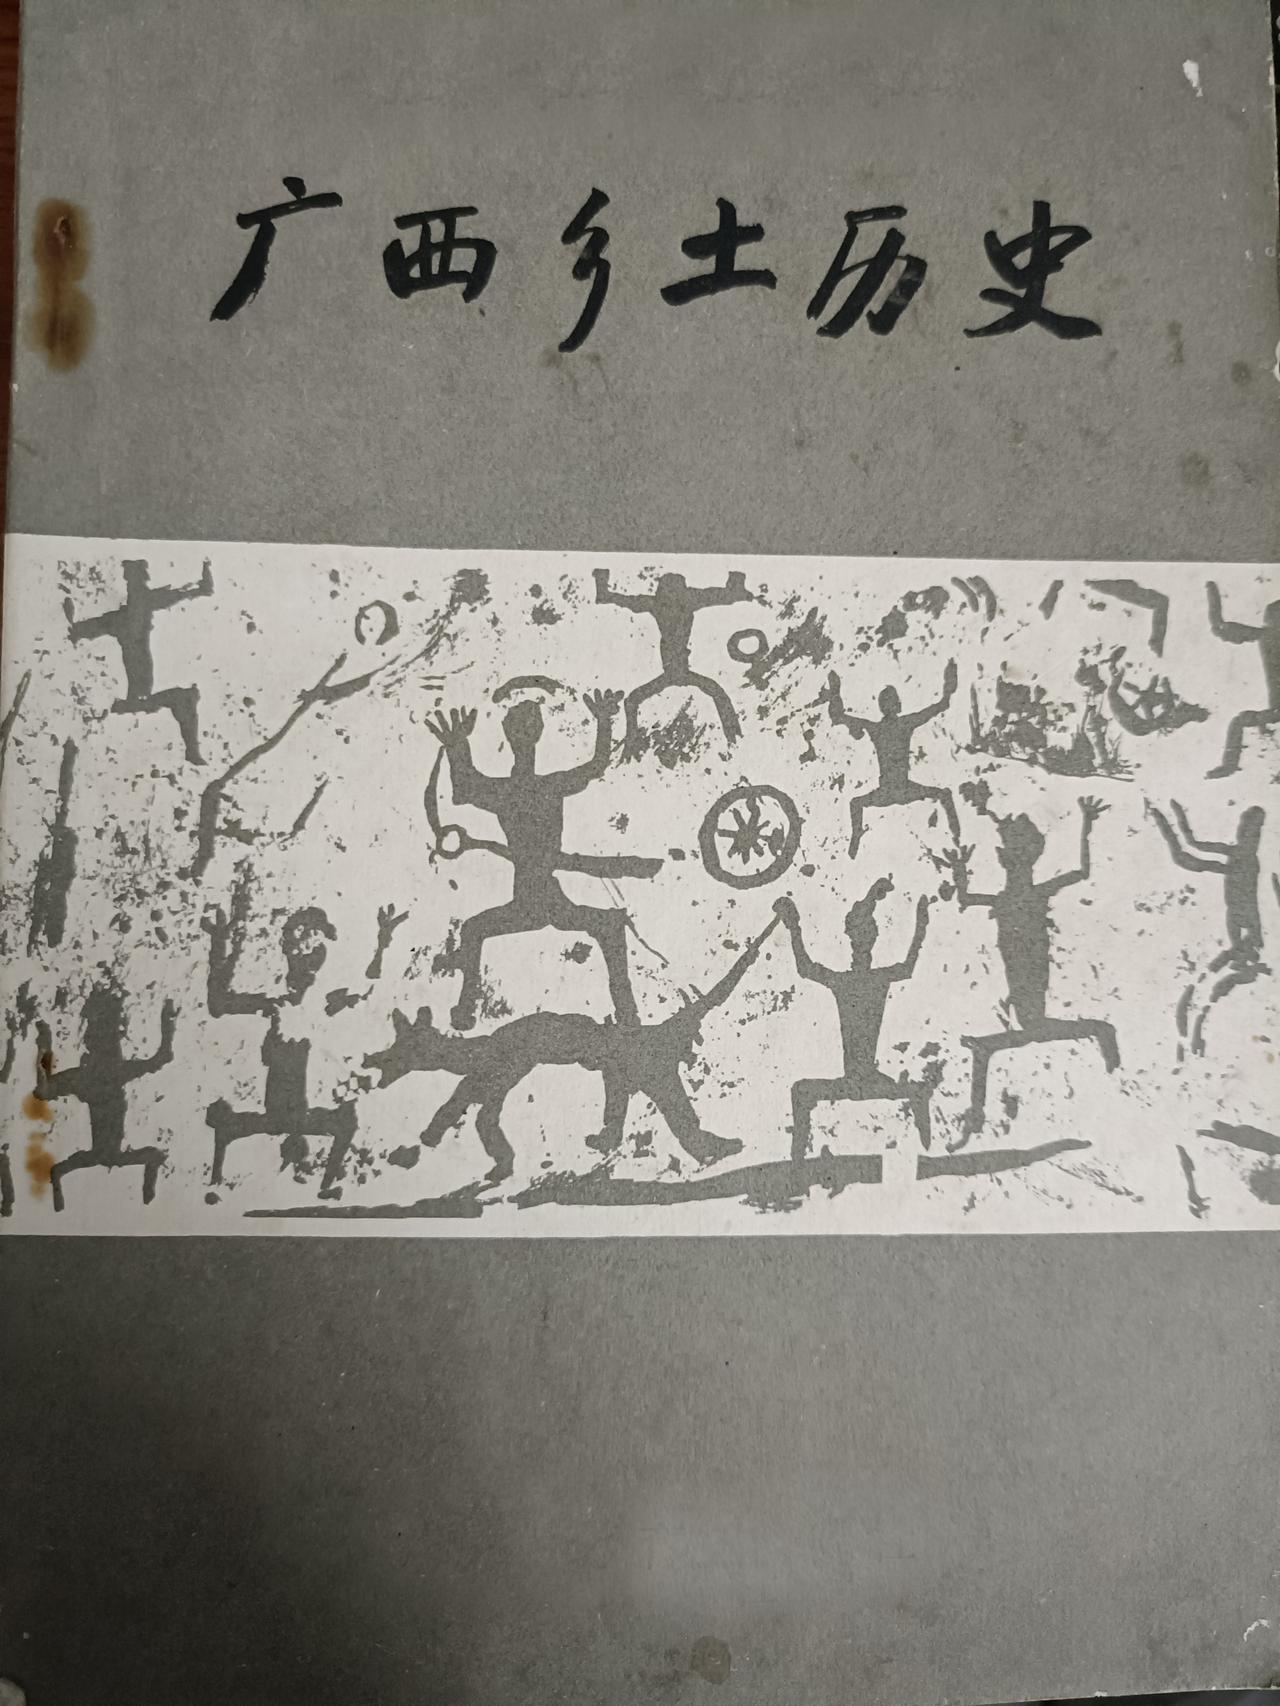 广西乡土历史